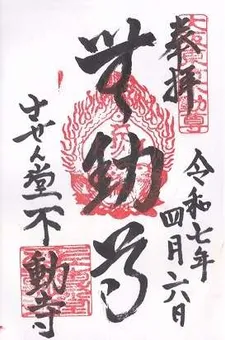 奉拝
令和七年
四月六日
無動尊
出せん堂不動寺